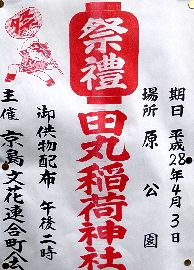 期日 平成28年4月3日
場所 原公園
祭禮
田丸稲荷神社
御供物配布 午後二時
主催 京島文花連合町会